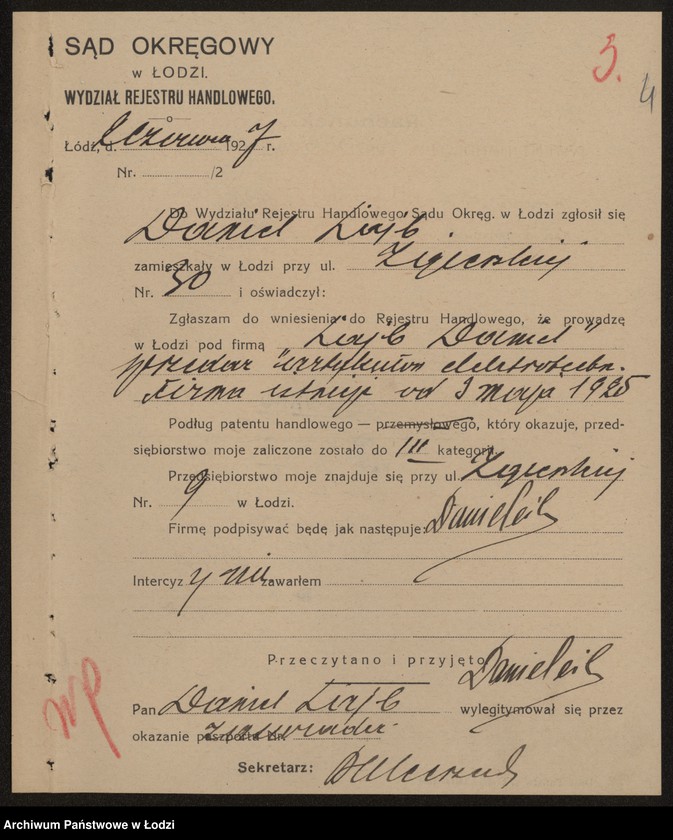 SĄD OKRĘGOWY
w ŁODZI.
WYDZIAŁ REJESTRU HANDLOWEGO.
5.
4
Łódź, d. czerwca 1927 r.
Nr. /2
Do Wydziału Rejestru Handlowego Sądu Okręg. w Łodzi zgłosił się
Daniel Lajb
zamieszkały w Łodzi przy ul. Zgierskiej
Nr. 30 i oświadczył:
Zgłaszam do wniesienia do Rejestru Handlowego, że prowadzę
w Łodzi pod firmą "Lajb Daniel"
sprzedaż artykułów elektrotechn.
Firma istnieje od 3 maja 1925
Podług patentu handlowego — przemysłowego, który okazuje, przed-
siębiorstwo moje zaliczone zostało do III kategorji.
Przedsiębiorstwo moje znajduje się przy ul. Zgierskiej
Nr. 9 w Łodzi.
Firmę podpisywać będę jak następuje:
Intercyzy nie zawarłem
Przeczytano i przyjęto
Pan Daniel Lajb wylegitymował się przez
okazanie paszportu Nr.
Sekretarz:
WP
Archiwum Państwowe w Łodzi